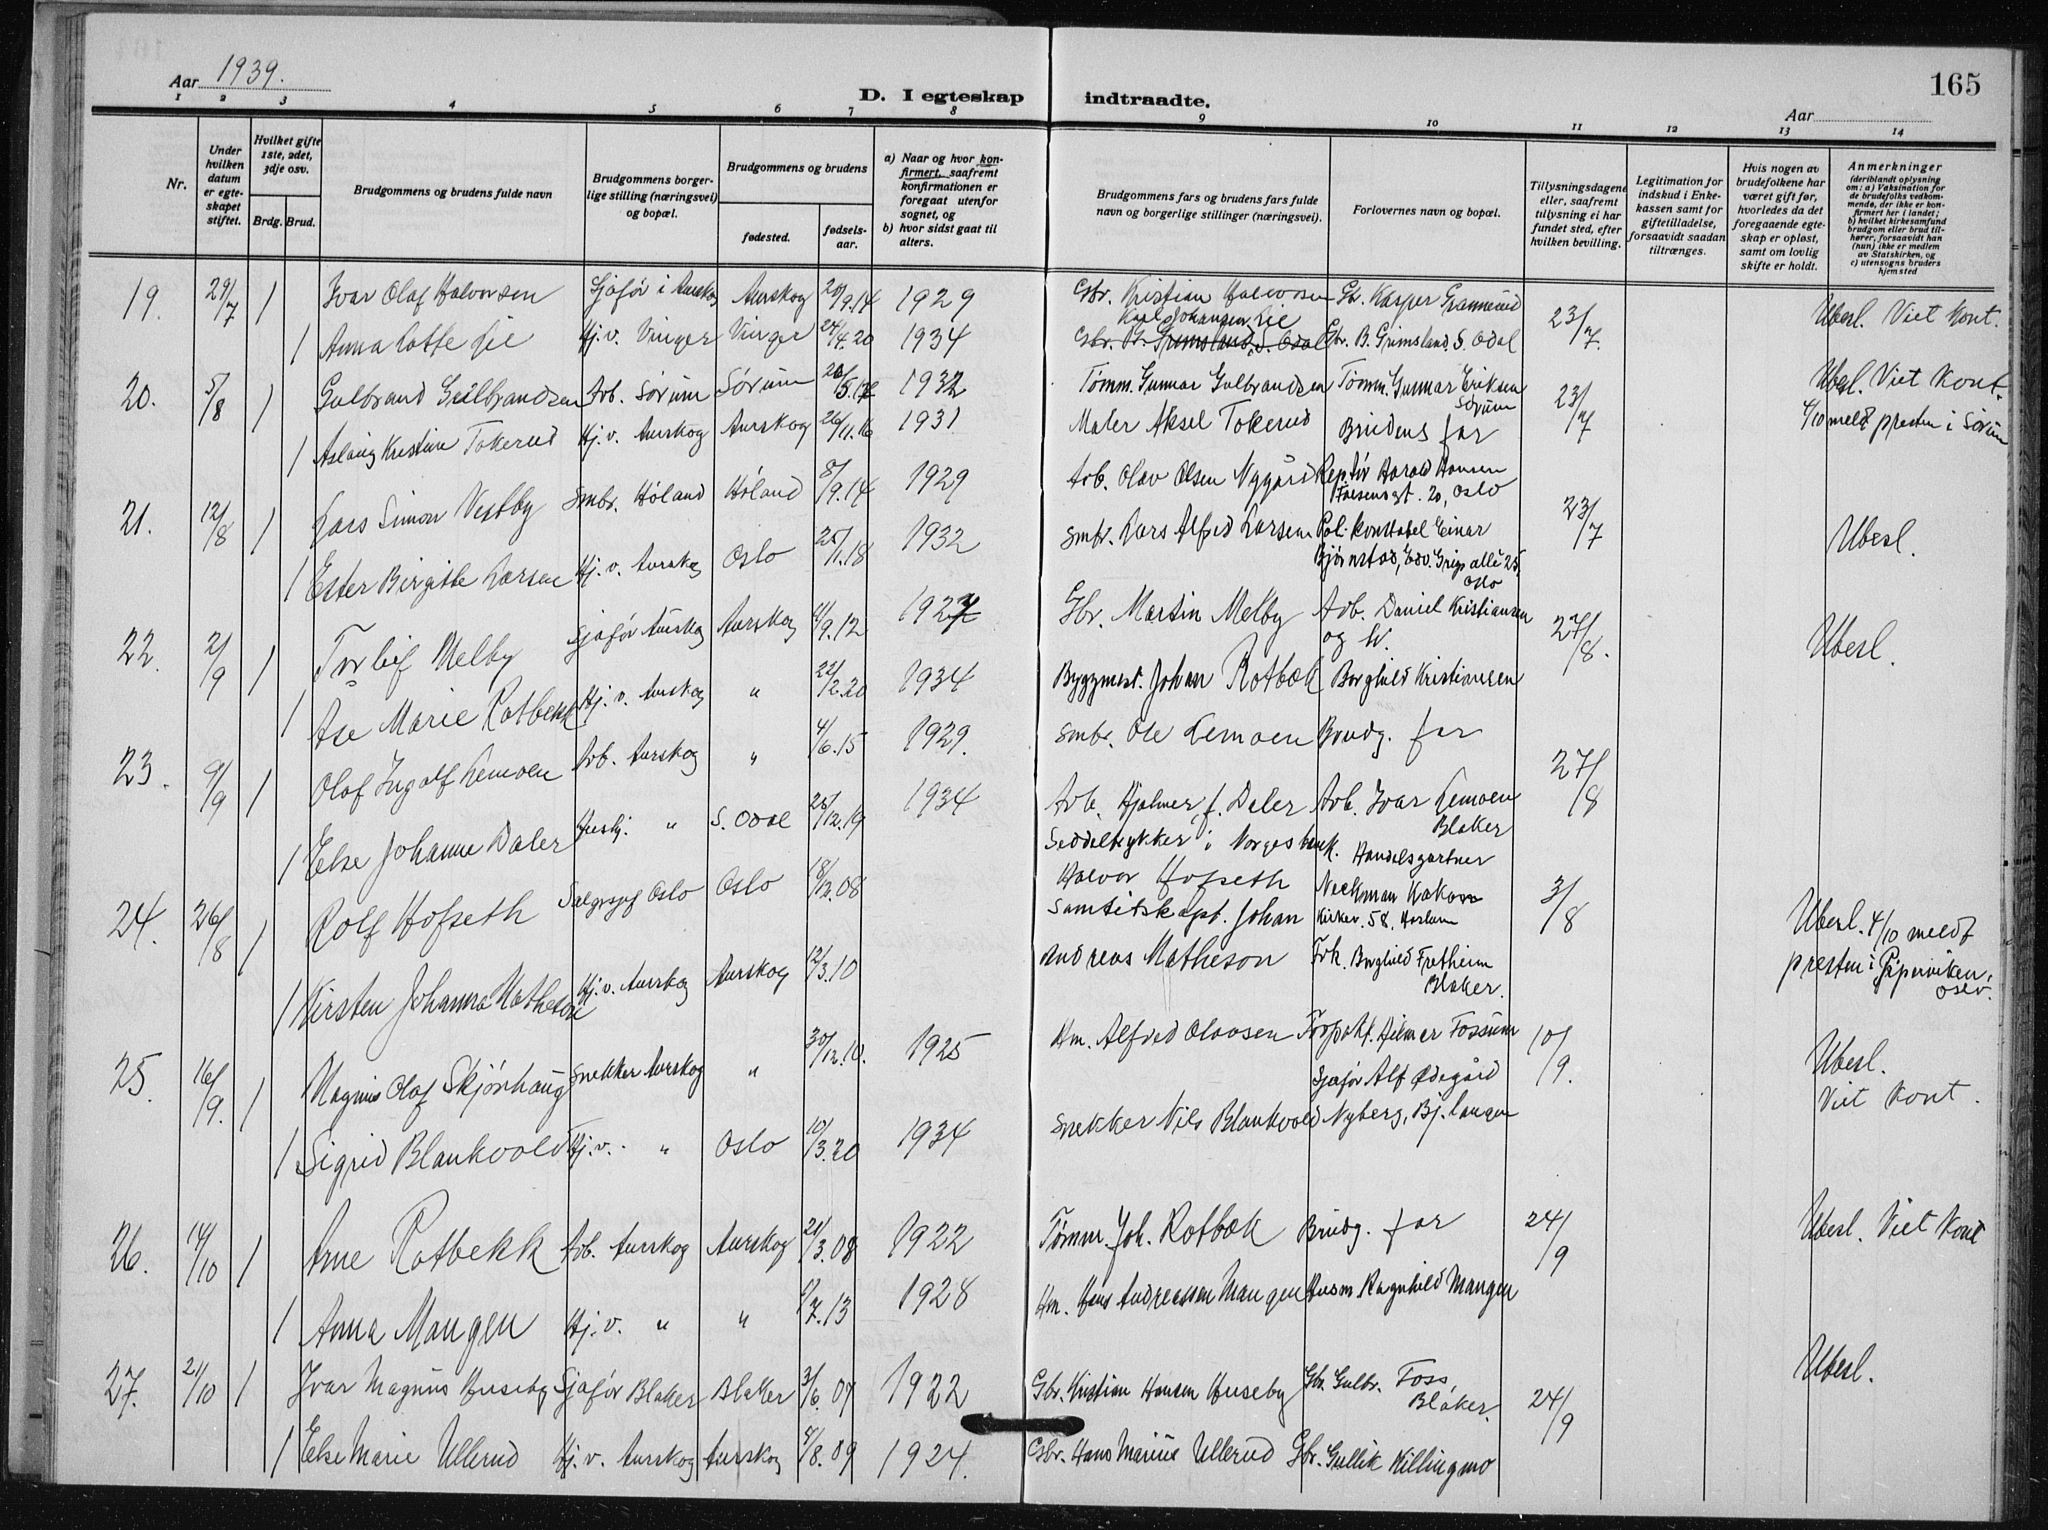 Aar 1939.
D. I egteskap indtraadte.
Aar
165
1 2 3 4 5 6 7 8 9 10 11 12 13 14
Nr.
Under hvilken datum er egteskapet stiftet.
Hvilket gifte 1ste, 2det, 3dje osv.
Brdg. Brud.
Brudgommens og brudens fulde navn
Brudgommens borgerlige stilling (næringsvei) og bopæl.
Brudgommens og brudens
fødested.
fødselsaar.
a) Naar og hvor konfirmert, saafremt konfirmationen er foregaat utenfor sognet, og
b) hvor sidst gaat til alters.
Brudgommens fars og brudens fars fulde navn og borgerlige stillinger (næringsvei).
Forlovernes navn og bopæl.
Tillysningsdagene eller, saafremt tillysning ei har fundet sted, efter hvilken bevilling.
Legitimation for indskud i Enkekassen samt for giftetilladelse, forsaavidt saadan tiltrænges.
Hvis nogen av brudefolkene har været gift før, hvorledes da det foregaaende egteskap er opløst, samt om lovlig skifte er holdt.
Anmerkninger
(deriblandt oplysning om: a) Vaksination for de brudefolks vedkommende, der ikke er konfirmert her i landet; b) hvilket kirkesamfund brudgom eller brud tilhører, forsaavidt han (hun) ikke er medlem av Statskirken, og c) utensogns bruders hjemsted
19. 29/7 1 Ivar Olaf Halvorsen Sjåfør i Aurskog Aurskog 20/9.14 1929 Gbr. Kristian Halvorsen Gbr. Kasper Grønnerud 23/7. Ubesl. Viet Kont.
Karl Johansen Lie
1 Anna Lotte Lie Hj.v. Vinger Vinger 24/4.20 1934 Gbr. B. Grimsland, S. Odal Gbr. B. Grimsland, S. Odal
20. 5/8 1 Gulbrand Gulbrandsen Arb. Sørum Sørum 20/5.17 1932 Tømm. Gunnar Gulbrandsen Tømm. Gunnar Eriksen Sørum 23/7 Ubesl. Viet Kont.
1 Aslaug Kristine Tokerud Hj.v. Aurskog Aurskog 26/11.16 1931 Maler Aksel Tokerud Brudens far 4/10 meldt presten i Sørum
21. 12/8 1 Lars Simon Vestby Smbr. Høland Høland 8/9.14 1929 Arb. Olav Olsen Nygård Rep.tør Harald Hansen
Falsensgt. 20, Oslo 23/7 Ubesl.
1 Ester Birgitte Larsen Hj.v. Aurskog Oslo 25/11.18 1932 Smbr. Lars Alfred Larsen Pol. konstabel Einar
Bjørnstad, Edv. Griegs allé 25, Oslo
22. 2/9 1 Torleif Melby Sjåfør Aurskog Aurskog 11/9.12 1927 Gbr. Martin Melby Arb. Daniel Kristiansen
og h. 27/8. Ubesl.
1 Åse Marie Rotbekk Hj.v. Aurskog " 22/2.20 1934 Byggmest. Johan Rotbæk Borghild Kristiansen
23. 9/9 1 Olaf Ingolf Lemoen Arb. Aurskog " 4/6.15 1929. Smbr. Ole Lemoen Brudg. far 27/8
1 Else Johanne Daler Hushj. " S. Odal 25/12.19 1934 Arb. Hjalmer J. Daler Arb. Ivar Lemoen Blaker
24. 26/8 1 Rolf Hofseth Salgssjef Oslo Oslo 18/12.08 Seddeltrykker i Norges bank. Halvor Hofseth Handelsgartner
Kirkev. 58. 3/8 Ubesl. 4/10 meldt
1 Kirsten Johanna Matheson Hj.v. Aurskog Aurskog 12/3.10 Samtidskapt. Johan Andreas Matheson Frk. Borghild Fretheim Blaker. presten i Piperviken, Oslo.
25. 16/9. 1 Magnus Olaf Skjønhaug Snekker Aurskog " 30/12.10. 1925 Hm. Alfred Olavsen Forpakt. Hilmer Fossum 10/9. Ubesl.
Sjåfør Alf Ødegård Viet Kont.
1 Sigrid Blankvold Hj.v. " Oslo 10/3.20 1934 Snekker Nils Blankvold Nyberg, Bj.langen
26. 14/10 1 Arne Rotbekk Arb. Aurskog Aurskog 21/3.08 1922 Tømm. Joh. Rotbæk Brudg. far 24/9 Ubesl. Viet Kont
1 Anna Mangen Hj.v. " " 9/7.13 1928 Hm. Hans Andreassen Mangen Husm. Ragnhild Mangen
27. 21/10 1 Ivar Magnus Huseby Sjåfør Blaker Blaker 3/6.07 1922 Gbr. Kristian Hansen Huseby Gbr. Gulbr. Foss, Blaker. 24/9 Ubesl.
1 Else Marie Ullerud Hj.v. Aurskog Aurskog 4/8.09 1924. Gbr. Hans Marius Ullerud Gbr. Gullik Killingmo